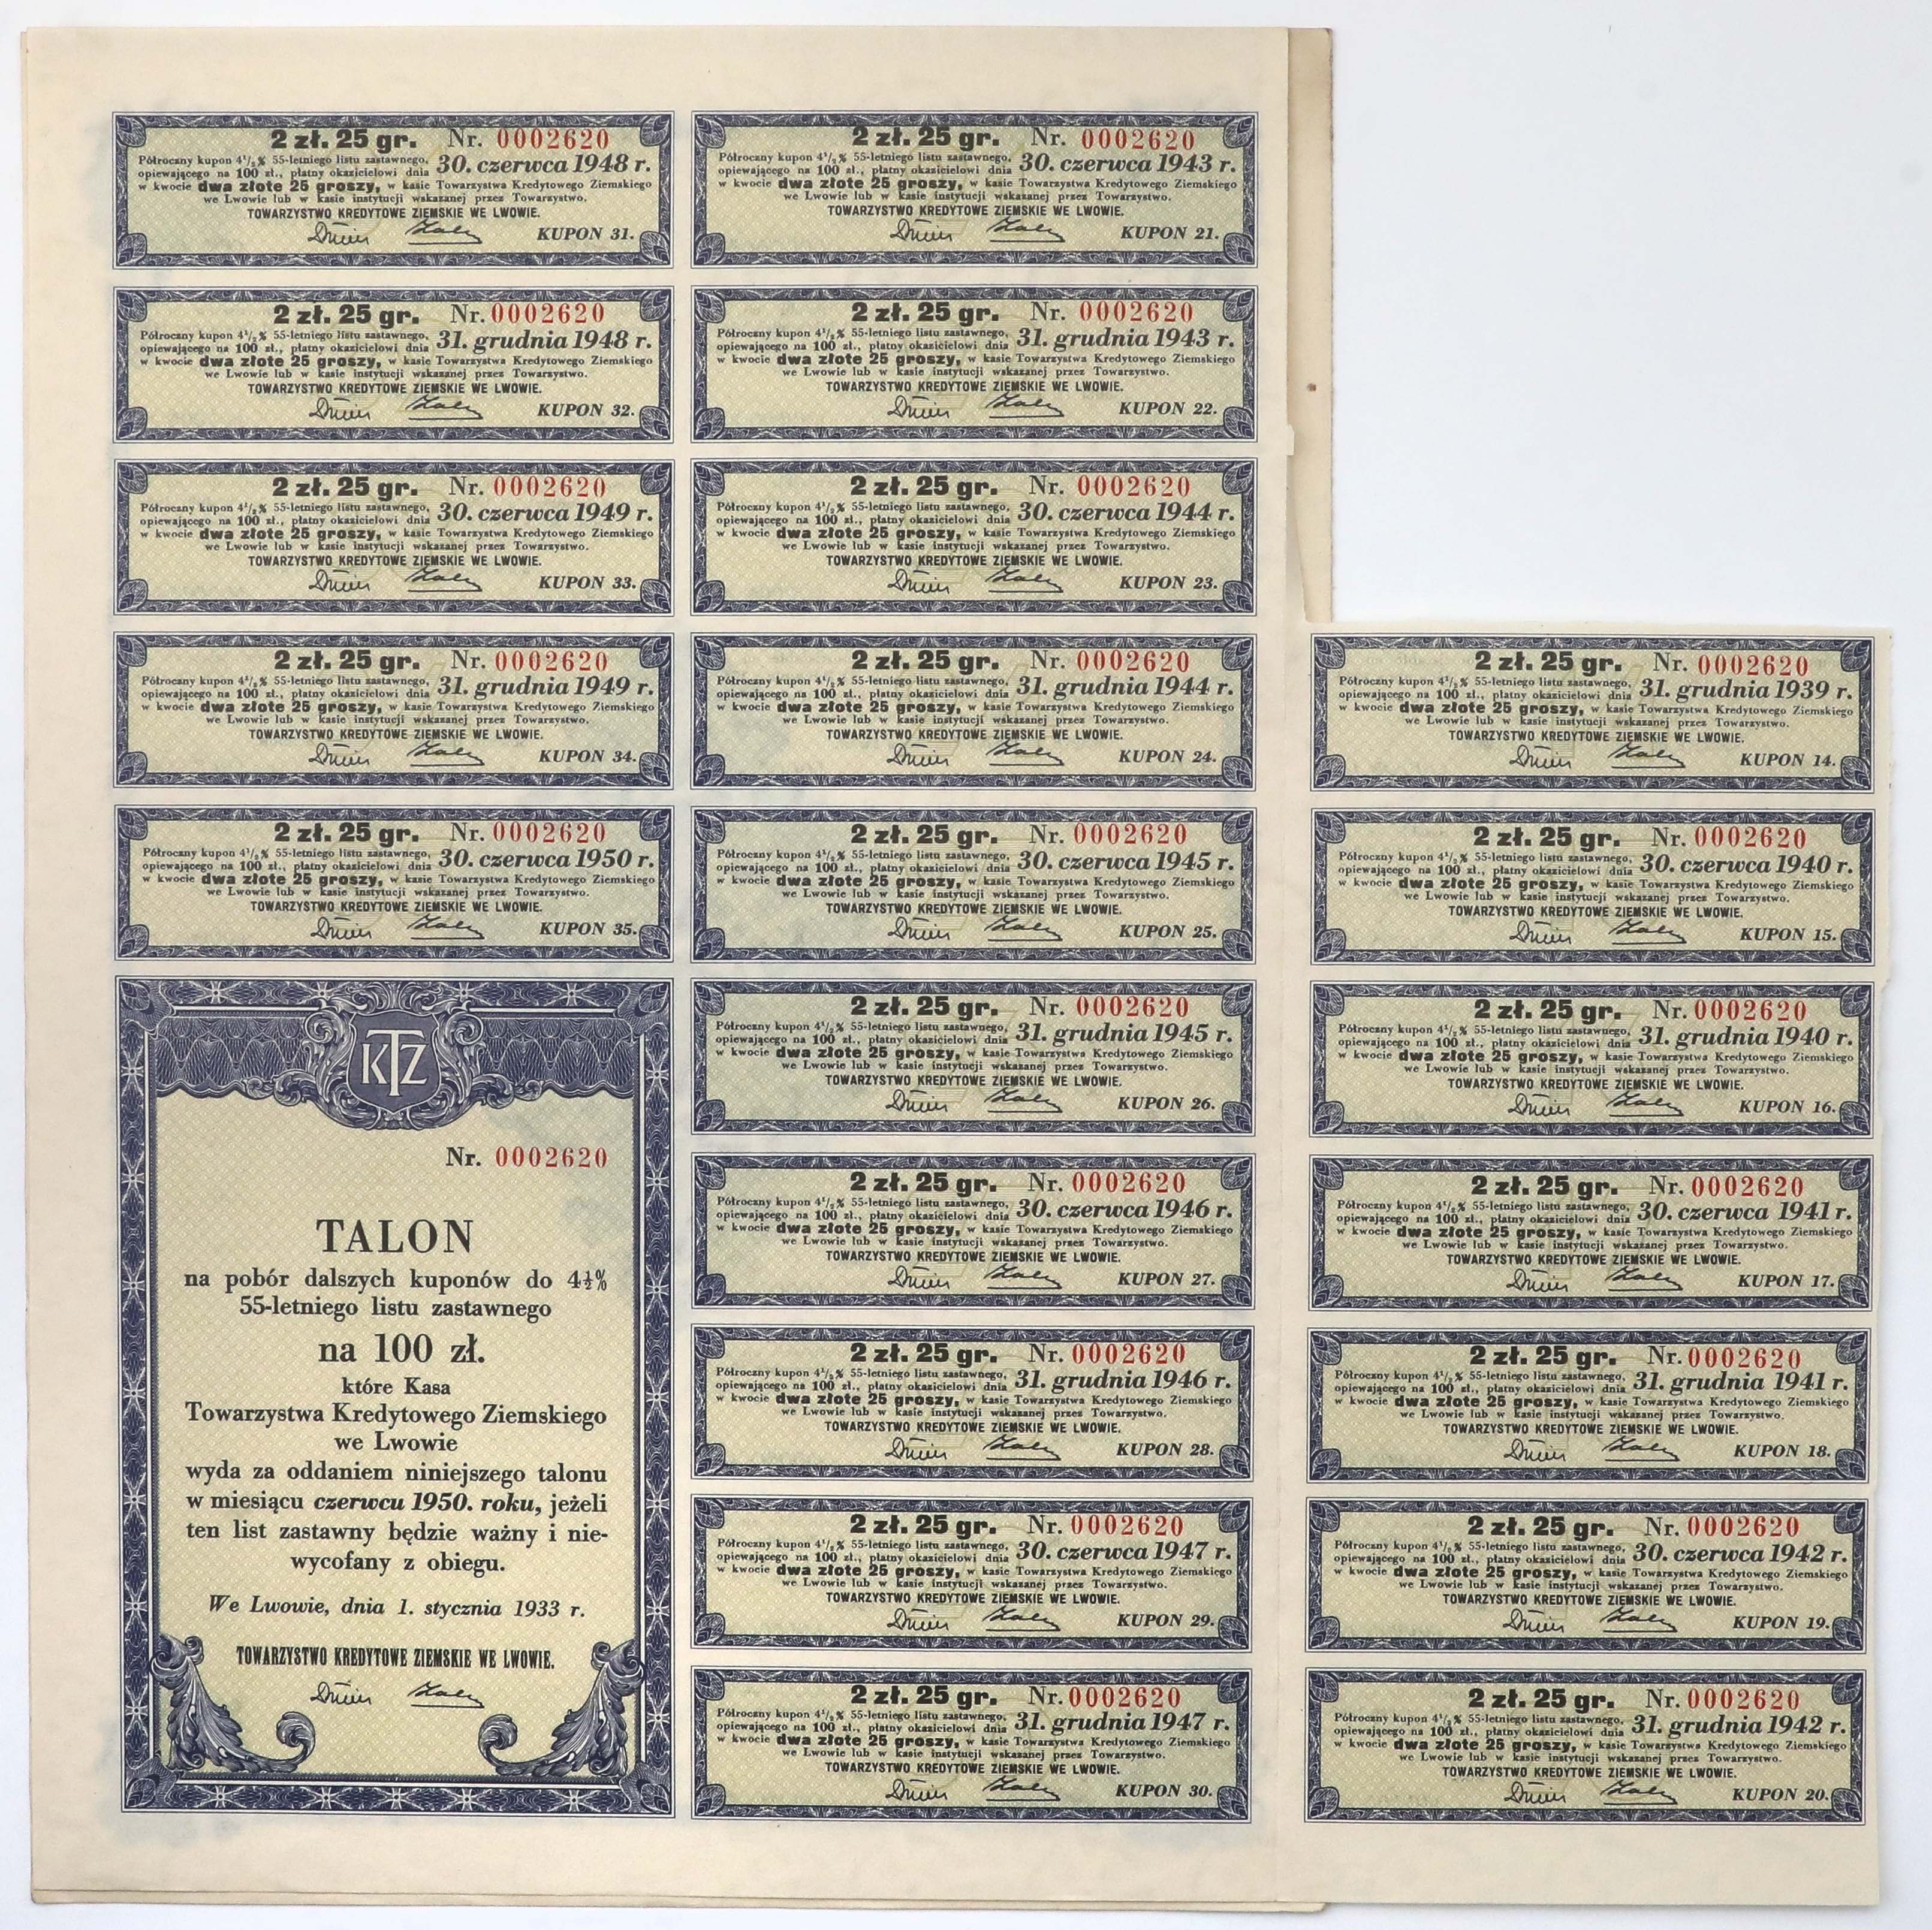 2 zł. 25 gr. Nr. 0002620
Półroczny kupon 4½% 55-letniego listu zastawnego,
opiewającego na 100 zł., płatny okazicielowi dnia 30. czerwca 1948 r.
w kwocie dwa złote 25 groszy, w kasie Towarzystwa Kredytowego Ziemskiego
we Lwowie lub w kasie instytucji wskazanej przez Towarzystwo.
TOWARZYSTWO KREDYTOWE ZIEMSKIE WE LWOWIE.
KUPON 31.
2 zł. 25 gr. Nr. 0002620
Półroczny kupon 4½% 55-letniego listu zastawnego,
opiewającego na 100 zł., płatny okazicielowi dnia 31. grudnia 1948 r.
w kwocie dwa złote 25 groszy, w kasie Towarzystwa Kredytowego Ziemskiego
we Lwowie lub w kasie instytucji wskazanej przez Towarzystwo.
TOWARZYSTWO KREDYTOWE ZIEMSKIE WE LWOWIE.
KUPON 32.
2 zł. 25 gr. Nr. 0002620
Półroczny kupon 4½% 55-letniego listu zastawnego,
opiewającego na 100 zł., płatny okazicielowi dnia 30. czerwca 1949 r.
w kwocie dwa złote 25 groszy, w kasie Towarzystwa Kredytowego Ziemskiego
we Lwowie lub w kasie instytucji wskazanej przez Towarzystwo.
TOWARZYSTWO KREDYTOWE ZIEMSKIE WE LWOWIE.
KUPON 33.
2 zł. 25 gr. Nr. 0002620
Półroczny kupon 4½% 55-letniego listu zastawnego,
opiewającego na 100 zł., płatny okazicielowi dnia 31. grudnia 1949 r.
w kwocie dwa złote 25 groszy, w kasie Towarzystwa Kredytowego Ziemskiego
we Lwowie lub w kasie instytucji wskazanej przez Towarzystwo.
TOWARZYSTWO KREDYTOWE ZIEMSKIE WE LWOWIE.
KUPON 34.
2 zł. 25 gr. Nr. 0002620
Półroczny kupon 4½% 55-letniego listu zastawnego,
opiewającego na 100 zł., płatny okazicielowi dnia 30. czerwca 1950 r.
w kwocie dwa złote 25 groszy, w kasie Towarzystwa Kredytowego Ziemskiego
we Lwowie lub w kasie instytucji wskazanej przez Towarzystwo.
TOWARZYSTWO KREDYTOWE ZIEMSKIE WE LWOWIE.
KUPON 35.
KTZ
Nr. 0002620
TALON
na pobór dalszych kuponów do 4½%
55-letniego listu zastawnego
na 100 zł.
które Kasa
Towarzystwa Kredytowego Ziemskiego
we Lwowie
wyda za oddaniem niniejszego talonu
w miesiącu czerwcu 1950. roku, jeżeli
ten list zastawny będzie ważny i nie-
wycofany z obiegu.
We Lwowie, dnia 1. stycznia 1933 r.
TOWARZYSTWO KREDYTOWE ZIEMSKIE WE LWOWIE.
2 zł. 25 gr. Nr. 0002620
Półroczny kupon 4½% 55-letniego listu zastawnego,
opiewającego na 100 zł., płatny okazicielowi dnia 30. czerwca 1943 r.
w kwocie dwa złote 25 groszy, w kasie Towarzystwa Kredytowego Ziemskiego
we Lwowie lub w kasie instytucji wskazanej przez Towarzystwo.
TOWARZYSTWO KREDYTOWE ZIEMSKIE WE LWOWIE.
KUPON 21.
2 zł. 25 gr. Nr. 0002620
Półroczny kupon 4½% 55-letniego listu zastawnego,
opiewającego na 100 zł., płatny okazicielowi dnia 31. grudnia 1943 r.
w kwocie dwa złote 25 groszy, w kasie Towarzystwa Kredytowego Ziemskiego
we Lwowie lub w kasie instytucji wskazanej przez Towarzystwo.
TOWARZYSTWO KREDYTOWE ZIEMSKIE WE LWOWIE.
KUPON 22.
2 zł. 25 gr. Nr. 0002620
Półroczny kupon 4½% 55-letniego listu zastawnego,
opiewającego na 100 zł., płatny okazicielowi dnia 30. czerwca 1944 r.
w kwocie dwa złote 25 groszy, w kasie Towarzystwa Kredytowego Ziemskiego
we Lwowie lub w kasie instytucji wskazanej przez Towarzystwo.
TOWARZYSTWO KREDYTOWE ZIEMSKIE WE LWOWIE.
KUPON 23.
2 zł. 25 gr. Nr. 0002620
Półroczny kupon 4½% 55-letniego listu zastawnego,
opiewającego na 100 zł., płatny okazicielowi dnia 31. grudnia 1944 r.
w kwocie dwa złote 25 groszy, w kasie Towarzystwa Kredytowego Ziemskiego
we Lwowie lub w kasie instytucji wskazanej przez Towarzystwo.
TOWARZYSTWO KREDYTOWE ZIEMSKIE WE LWOWIE.
KUPON 24.
2 zł. 25 gr. Nr. 0002620
Półroczny kupon 4½% 55-letniego listu zastawnego,
opiewającego na 100 zł., płatny okazicielowi dnia 30. czerwca 1945 r.
w kwocie dwa złote 25 groszy, w kasie Towarzystwa Kredytowego Ziemskiego
we Lwowie lub w kasie instytucji wskazanej przez Towarzystwo.
TOWARZYSTWO KREDYTOWE ZIEMSKIE WE LWOWIE.
KUPON 25.
2 zł. 25 gr. Nr. 0002620
Półroczny kupon 4½% 55-letniego listu zastawnego,
opiewającego na 100 zł., płatny okazicielowi dnia 31. grudnia 1945 r.
w kwocie dwa złote 25 groszy, w kasie Towarzystwa Kredytowego Ziemskiego
we Lwowie lub w kasie instytucji wskazanej przez Towarzystwo.
TOWARZYSTWO KREDYTOWE ZIEMSKIE WE LWOWIE.
KUPON 26.
2 zł. 25 gr. Nr. 0002620
Półroczny kupon 4½% 55-letniego listu zastawnego,
opiewającego na 100 zł., płatny okazicielowi dnia 30. czerwca 1946 r.
w kwocie dwa złote 25 groszy, w kasie Towarzystwa Kredytowego Ziemskiego
we Lwowie lub w kasie instytucji wskazanej przez Towarzystwo.
TOWARZYSTWO KREDYTOWE ZIEMSKIE WE LWOWIE.
KUPON 27.
2 zł. 25 gr. Nr. 0002620
Półroczny kupon 4½% 55-letniego listu zastawnego,
opiewającego na 100 zł., płatny okazicielowi dnia 31. grudnia 1946 r.
w kwocie dwa złote 25 groszy, w kasie Towarzystwa Kredytowego Ziemskiego
we Lwowie lub w kasie instytucji wskazanej przez Towarzystwo.
TOWARZYSTWO KREDYTOWE ZIEMSKIE WE LWOWIE.
KUPON 28.
2 zł. 25 gr. Nr. 0002620
Półroczny kupon 4½% 55-letniego listu zastawnego,
opiewającego na 100 zł., płatny okazicielowi dnia 30. czerwca 1947 r.
w kwocie dwa złote 25 groszy, w kasie Towarzystwa Kredytowego Ziemskiego
we Lwowie lub w kasie instytucji wskazanej przez Towarzystwo.
TOWARZYSTWO KREDYTOWE ZIEMSKIE WE LWOWIE.
KUPON 29.
2 zł. 25 gr. Nr. 0002620
Półroczny kupon 4½% 55-letniego listu zastawnego,
opiewającego na 100 zł., płatny okazicielowi dnia 31. grudnia 1947 r.
w kwocie dwa złote 25 groszy, w kasie Towarzystwa Kredytowego Ziemskiego
we Lwowie lub w kasie instytucji wskazanej przez Towarzystwo.
TOWARZYSTWO KREDYTOWE ZIEMSKIE WE LWOWIE.
KUPON 30.
2 zł. 25 gr. Nr. 0002620
Półroczny kupon 4½% 55-letniego listu zastawnego,
opiewającego na 100 zł., płatny okazicielowi dnia 31. grudnia 1939 r.
w kwocie dwa złote 25 groszy, w kasie Towarzystwa Kredytowego Ziemskiego
we Lwowie lub w kasie instytucji wskazanej przez Towarzystwo.
TOWARZYSTWO KREDYTOWE ZIEMSKIE WE LWOWIE.
KUPON 14.
2 zł. 25 gr. Nr. 0002620
Półroczny kupon 4½% 55-letniego listu zastawnego,
opiewającego na 100 zł., płatny okazicielowi dnia 30. czerwca 1940 r.
w kwocie dwa złote 25 groszy, w kasie Towarzystwa Kredytowego Ziemskiego
we Lwowie lub w kasie instytucji wskazanej przez Towarzystwo.
TOWARZYSTWO KREDYTOWE ZIEMSKIE WE LWOWIE.
KUPON 15.
2 zł. 25 gr. Nr. 0002620
Półroczny kupon 4½% 55-letniego listu zastawnego,
opiewającego na 100 zł., płatny okazicielowi dnia 31. grudnia 1940 r.
w kwocie dwa złote 25 groszy, w kasie Towarzystwa Kredytowego Ziemskiego
we Lwowie lub w kasie instytucji wskazanej przez Towarzystwo.
TOWARZYSTWO KREDYTOWE ZIEMSKIE WE LWOWIE.
KUPON 16.
2 zł. 25 gr. Nr. 0002620
Półroczny kupon 4½% 55-letniego listu zastawnego,
opiewającego na 100 zł., płatny okazicielowi dnia 30. czerwca 1941 r.
w kwocie dwa złote 25 groszy, w kasie Towarzystwa Kredytowego Ziemskiego
we Lwowie lub w kasie instytucji wskazanej przez Towarzystwo.
TOWARZYSTWO KREDYTOWE ZIEMSKIE WE LWOWIE.
KUPON 17.
2 zł. 25 gr. Nr. 0002620
Półroczny kupon 4½% 55-letniego listu zastawnego,
opiewającego na 100 zł., płatny okazicielowi dnia 31. grudnia 1941 r.
w kwocie dwa złote 25 groszy, w kasie Towarzystwa Kredytowego Ziemskiego
we Lwowie lub w kasie instytucji wskazanej przez Towarzystwo.
TOWARZYSTWO KREDYTOWE ZIEMSKIE WE LWOWIE.
KUPON 18.
2 zł. 25 gr. Nr. 0002620
Półroczny kupon 4½% 55-letniego listu zastawnego,
opiewającego na 100 zł., płatny okazicielowi dnia 30. czerwca 1942 r.
w kwocie dwa złote 25 groszy, w kasie Towarzystwa Kredytowego Ziemskiego
we Lwowie lub w kasie instytucji wskazanej przez Towarzystwo.
TOWARZYSTWO KREDYTOWE ZIEMSKIE WE LWOWIE.
KUPON 19.
2 zł. 25 gr. Nr. 0002620
Półroczny kupon 4½% 55-letniego listu zastawnego,
opiewającego na 100 zł., płatny okazicielowi dnia 31. grudnia 1942 r.
w kwocie dwa złote 25 groszy, w kasie Towarzystwa Kredytowego Ziemskiego
we Lwowie lub w kasie instytucji wskazanej przez Towarzystwo.
TOWARZYSTWO KREDYTOWE ZIEMSKIE WE LWOWIE.
KUPON 20.